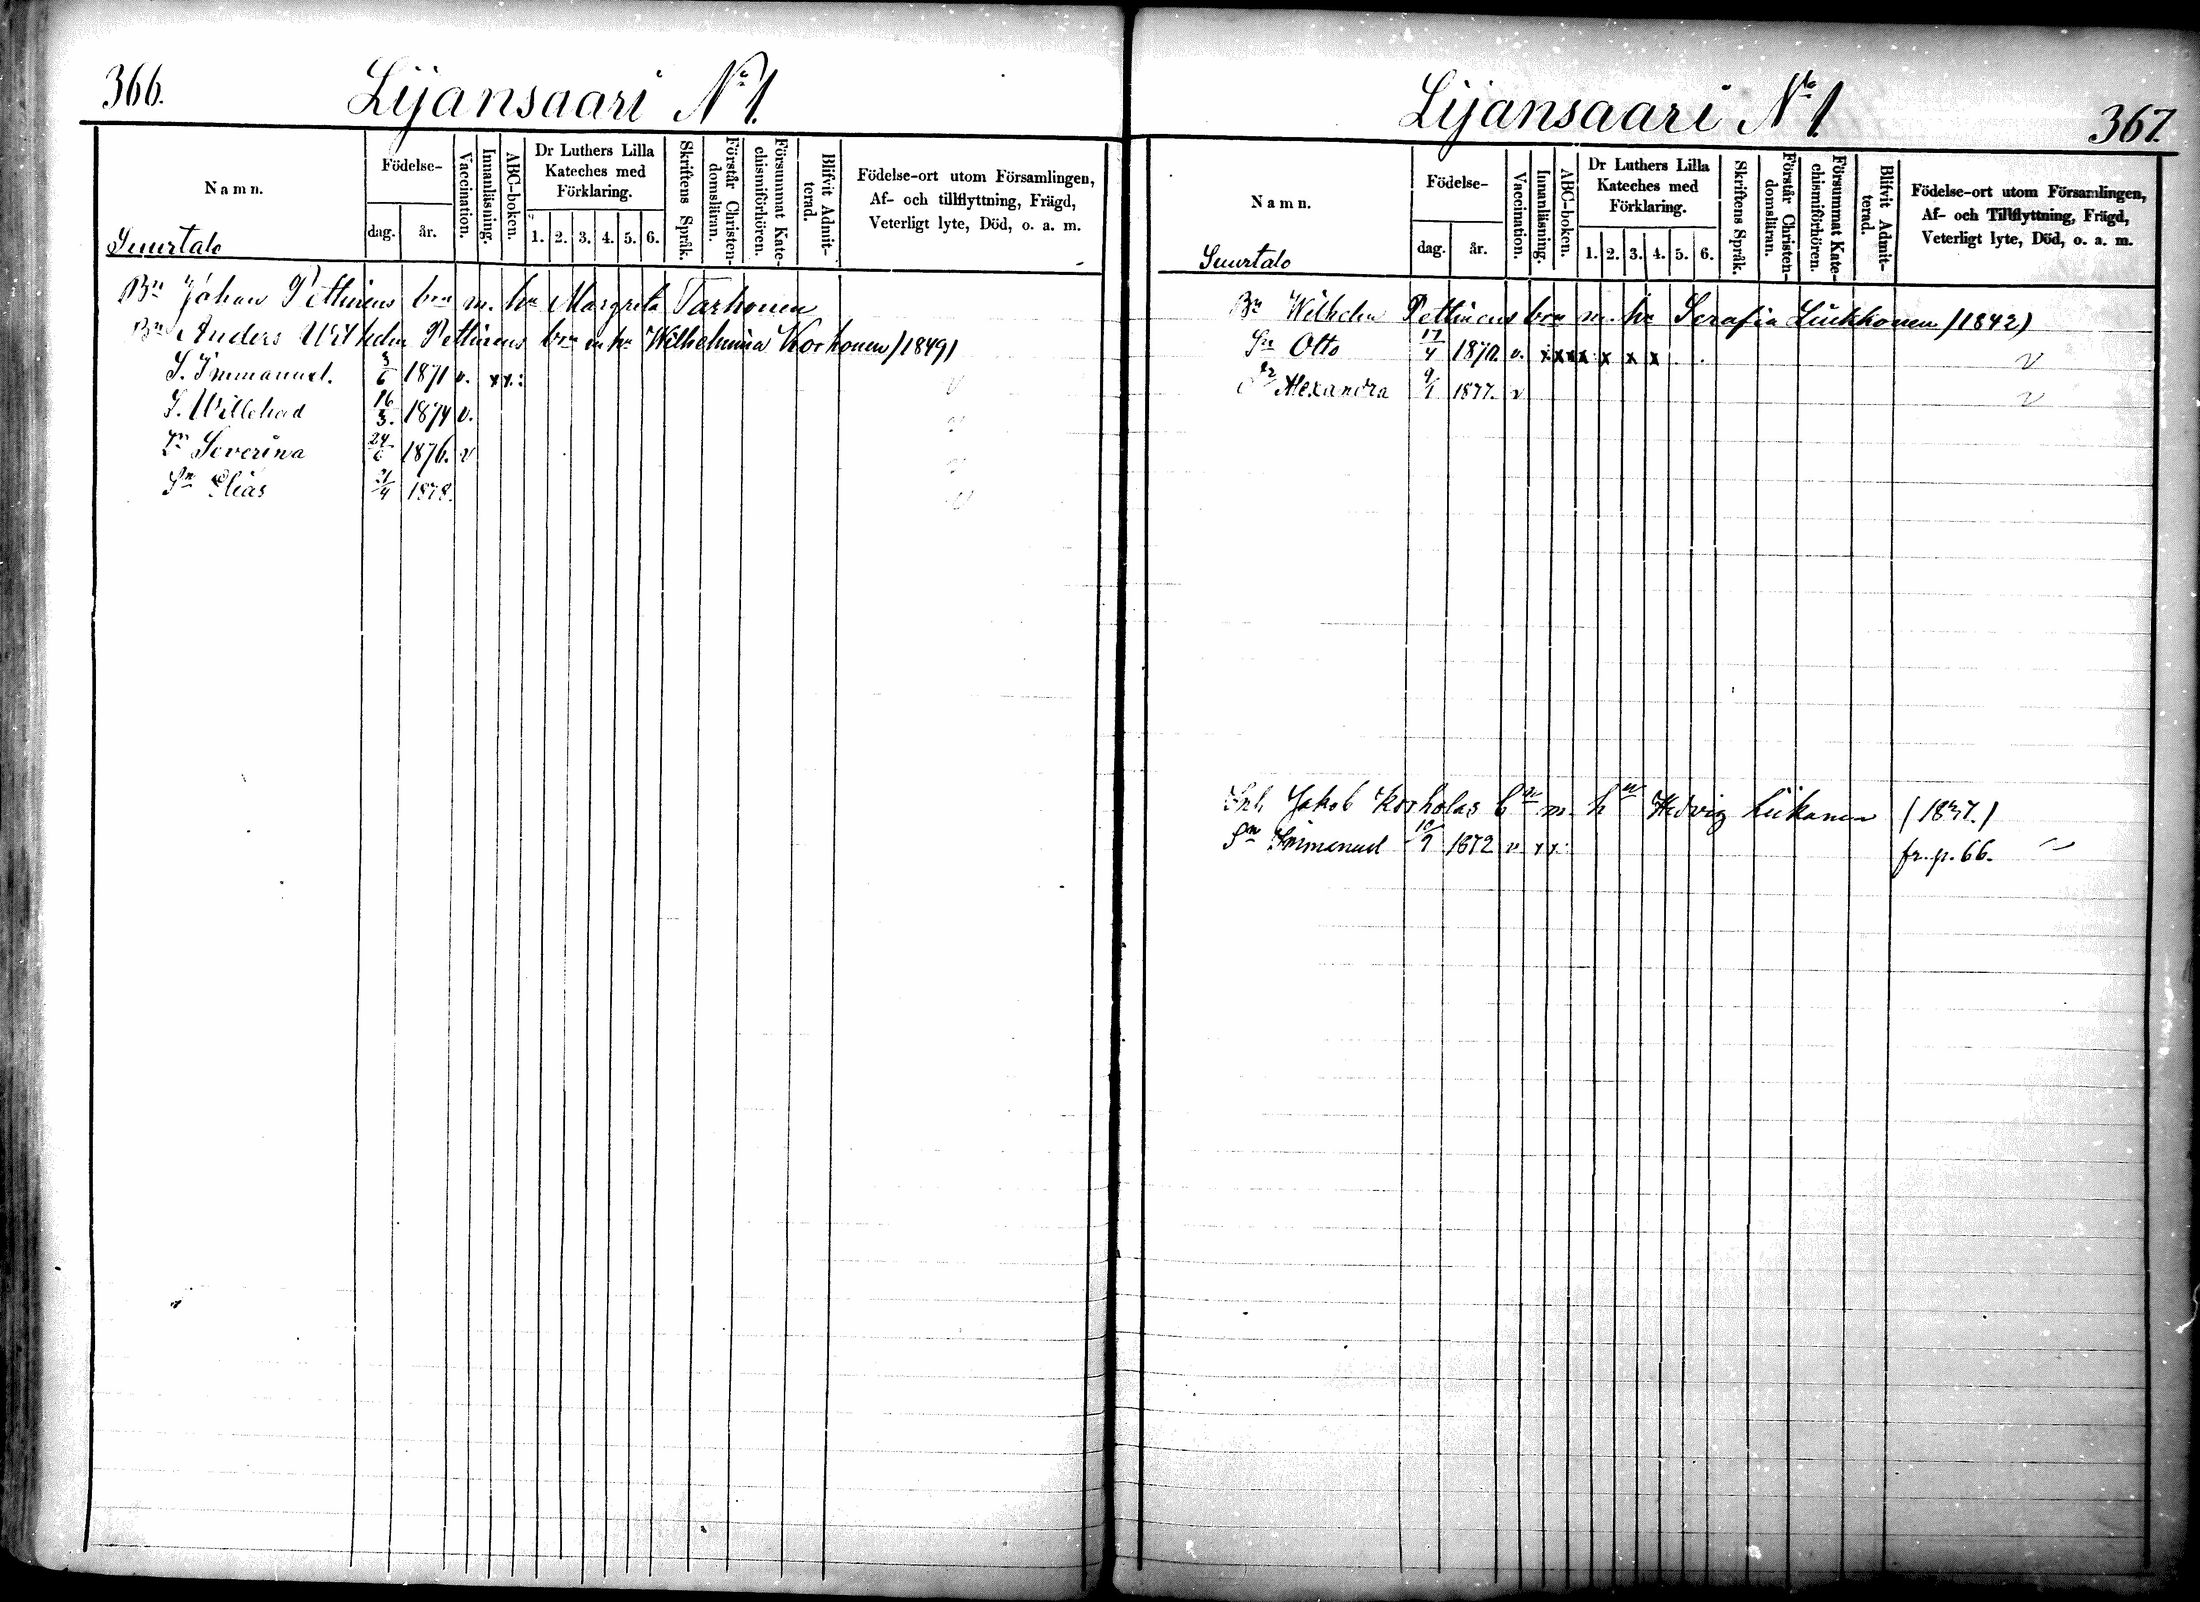 366.
Lijansaari No 1.
Namn.
Födelse-
dag.
år.
Vaccination.
Innanläsning.
ABC-boken.
Dr Luthers Lilla
Kateches med
Förklaring.
1. 2. 3. 4. 5. 6.
Skriftens Språk.
Förstår Christen-
domsläran.
Försummat Kate-
chismiförhören.
Blifvit Admit-
terad.
Födelse-ort utom Församlingen,
Af- och tillflyttning, Frägd,
Veterligt lyte, Död, o. a. m.
Suurtalo
Bn Johan Pettinens bn m. hu Margreta Tarhonen
Bn Anders Wilhelm Pettinens bn m hu Wilhelmina Korhonen (1849)
S. Immanuel. 3/6 1871 v. x x :
S. Willehad 16/3. 1874 v.
Severina 24/6 1876. v
Sn Elias 1878.
Lijansaari No 1
367.
Namn.
Födelse-
dag.
år.
Vaccination.
Innanläsning.
ABC-boken.
Dr Luthers Lilla
Kateches med
Förklaring.
1. 2. 3. 4. 5. 6.
Skriftens Språk.
Förstår Christen-
domsläran.
Försummat Kate-
chismiförhören.
Blifvit Admit-
terad.
Födelse-ort utom Församlingen,
Af- och Tillflyttning, Frägd,
Veterligt lyte, Död, o. a. m.
Suurtalo
Bn Wilhelm Pettinens bn m. hu Serafia Liukkonen (1842)
Sn Otto 17/4 1870. v. x x x x x x x v
Alexandra 9/1 1877. v v
Inh Jakob Korholas bn m. hu Hedvig Liikanen (1837.)
Sn Immanuel 10/9 1872 v x x : fr. p. 66.